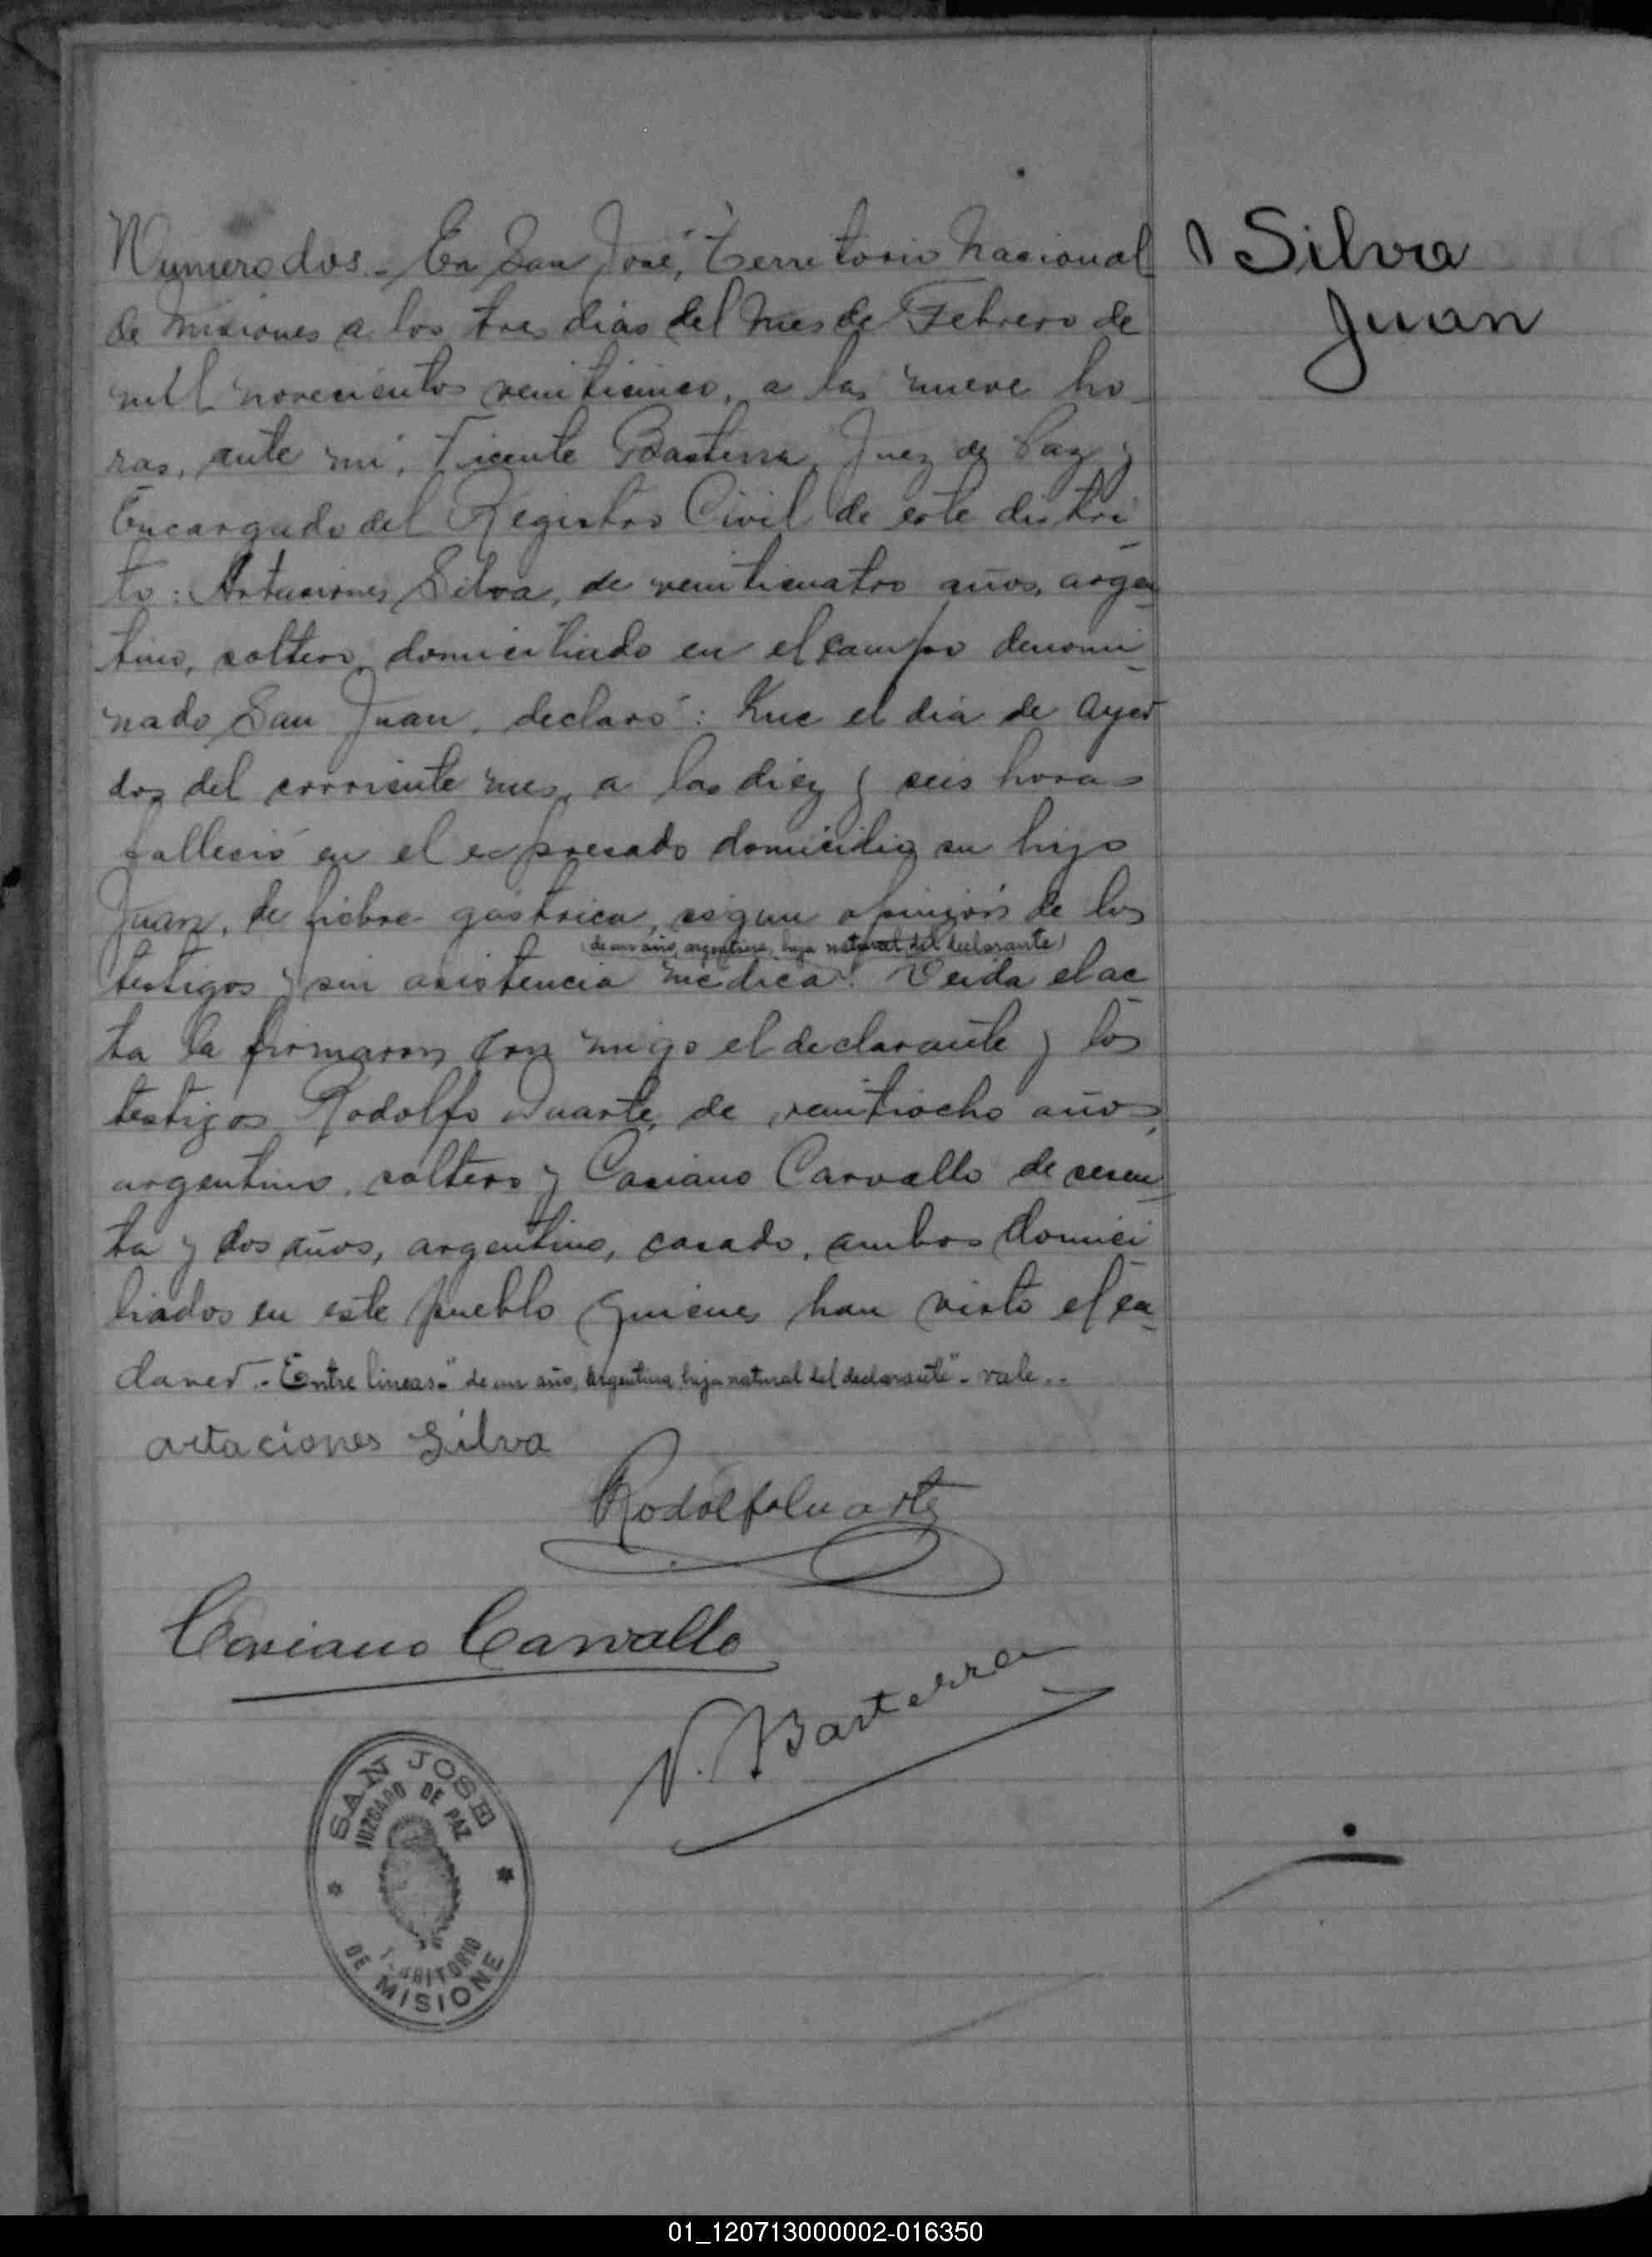 Numero dos.- En San José, Territorio Nacional
de Misiones a los tres dias del mes de Febrero de
mil novecientos veinticinco, a las nueve ho-
ras, ante mi, Vicente Basterra, Juez de Paz y
Encargado del Registro Civil de este distri-
to: Artaciones Silva, de veinticuatro años, argen-
tino, soltero, domiciliado en el campo denomi-
nado San Juan, declaró: Que el dia de ayer
dos del corriente mes, a las diez y seis horas
falleció en el expresado domicilio su hijo
Juan, de fiebre gástrica, segun opinión de los
(de un año, argentino, hijo natural del declarante)
testigos y sin asistencia médica. Leida el ac-
ta la firmaron con migo el declarante y los
testigos Rodolfo Duarte, de veintiocho años,
argentino, soltero y Casiano Carvallo de sesen-
ta y dos años, argentino, casado, ambos domici-
liados en este pueblo quienes han visto el ca-
daver.- Entre lineas- "de un año, argentino, hijo natural del declarante"- vale..
artaciones Silva
Rodolfo Duarte
Casiano Carvallo
V. Basterra
SAN JOSE
JUZGADO DE PAZ
TERRITORIO
DE MISIONE
Silva
Juan
01_120713000002-016350